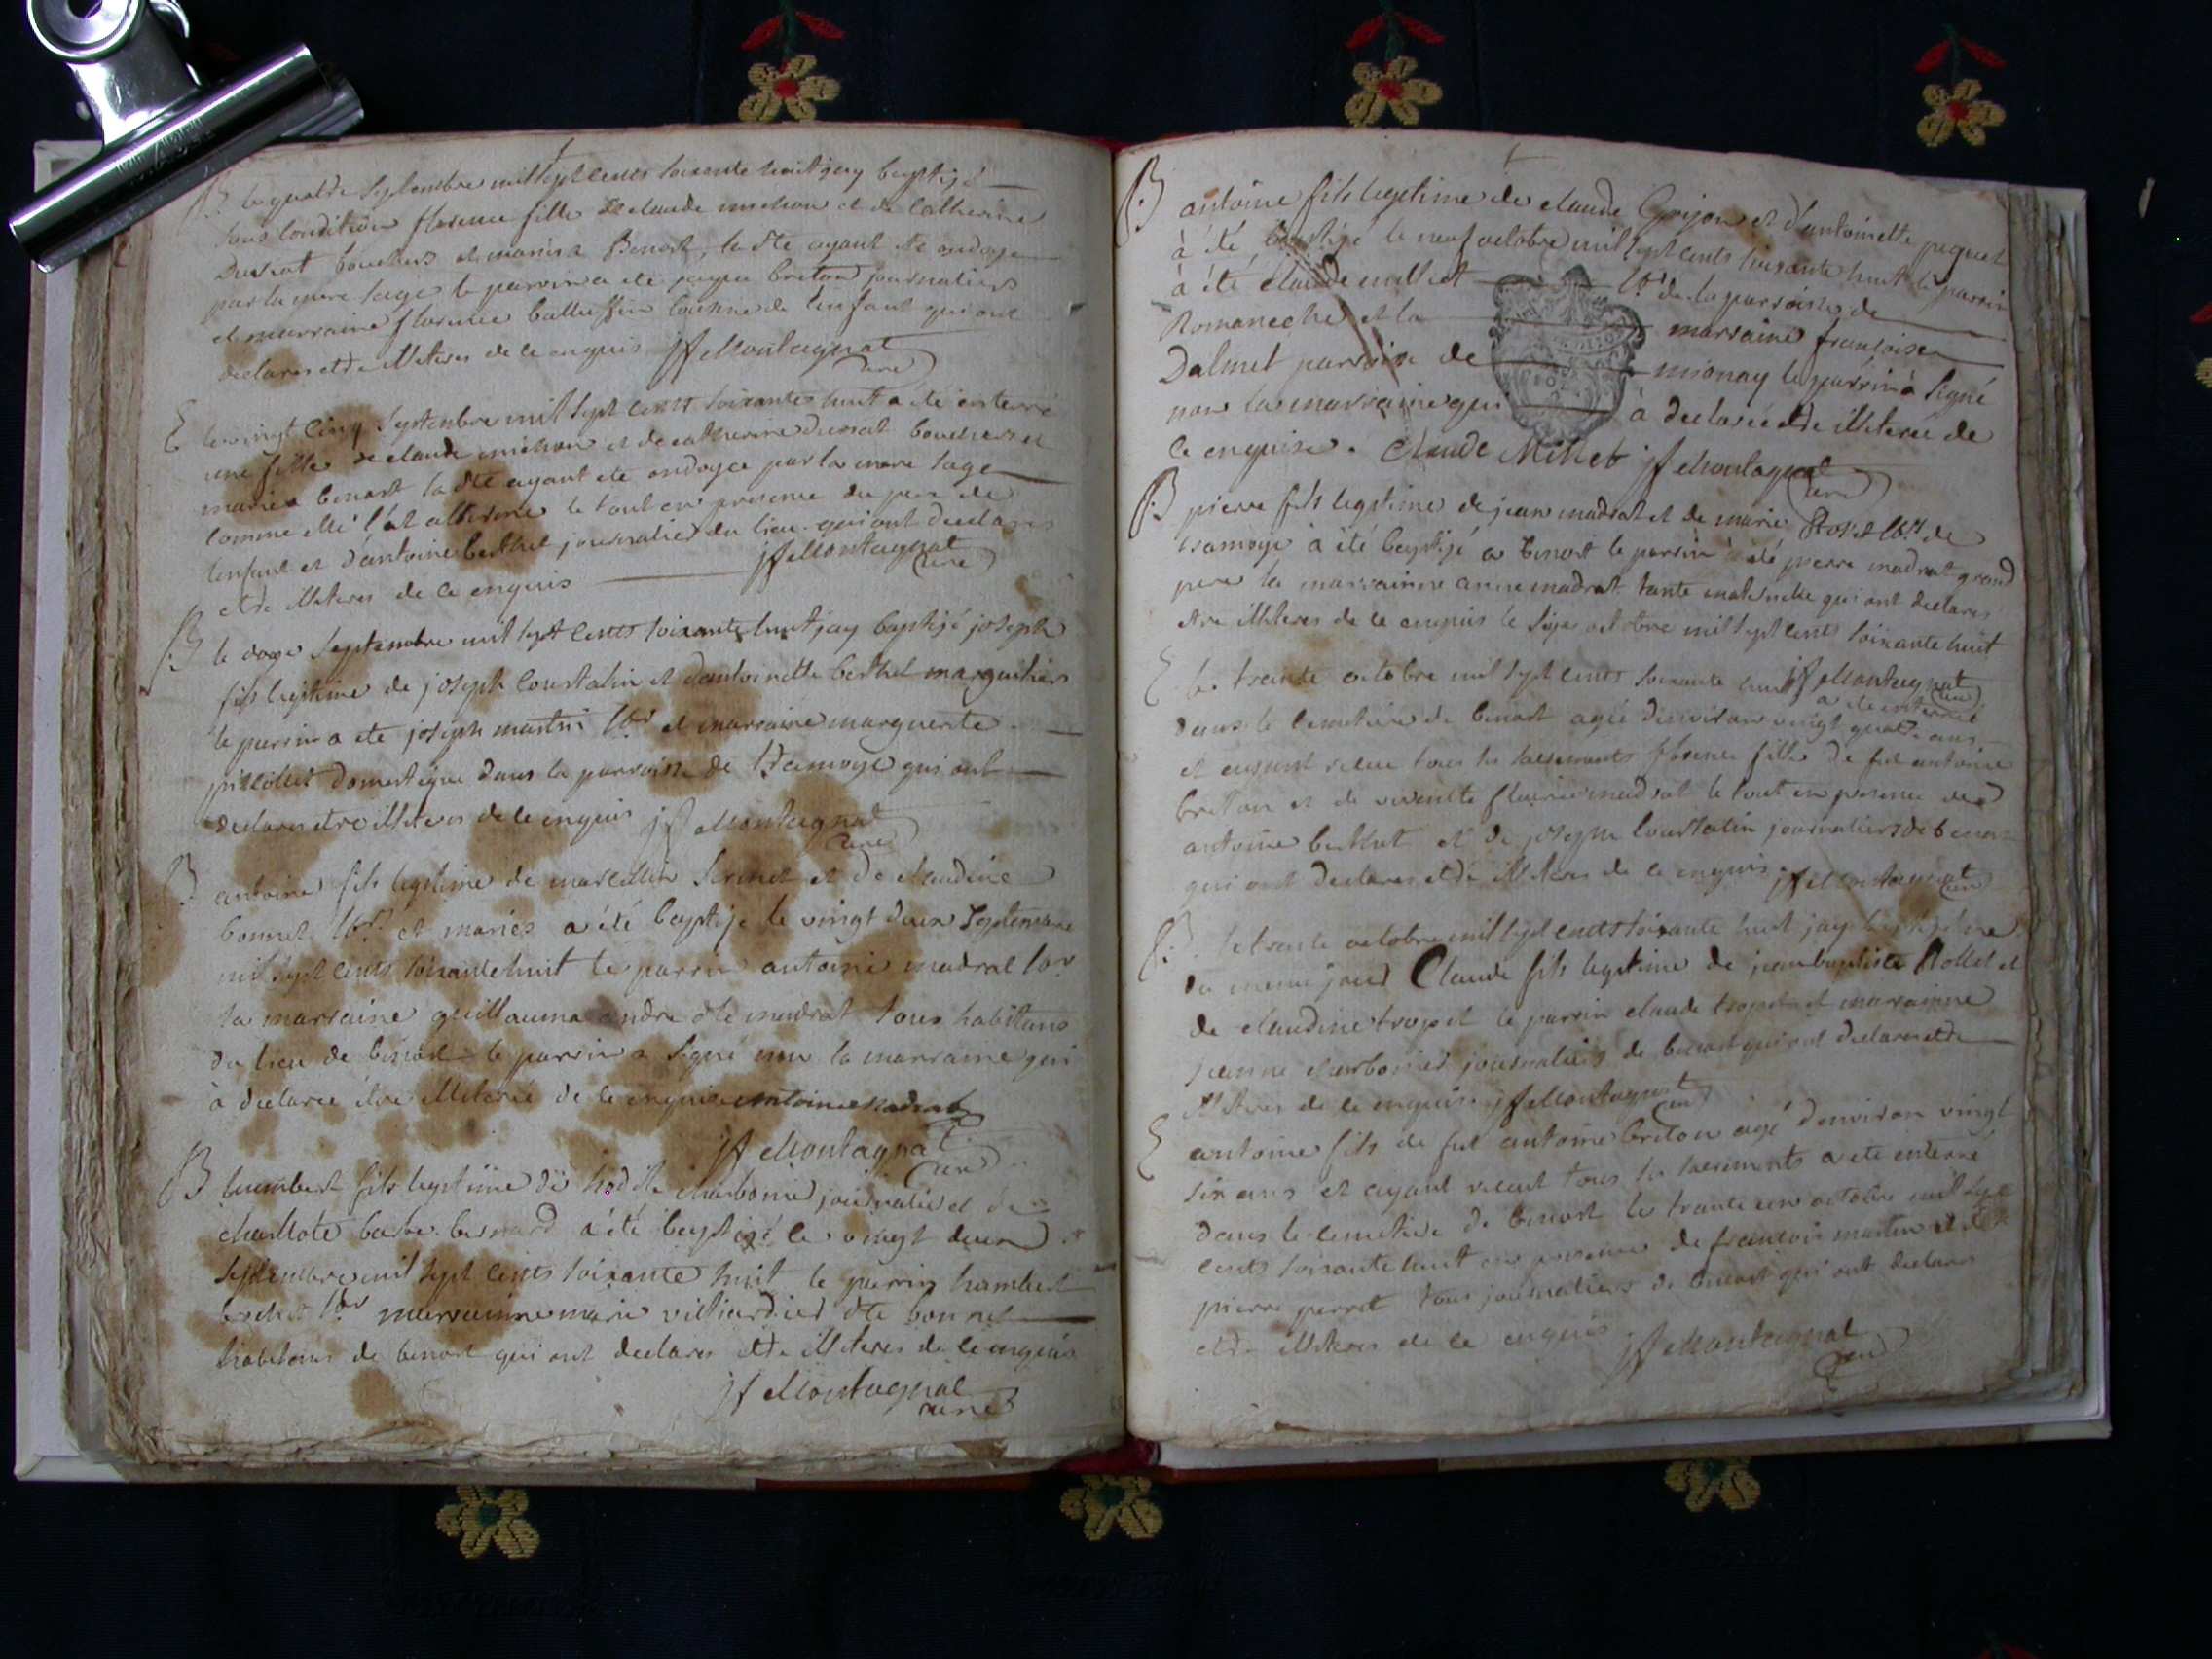 B le quatre septembre mil sept cents soixante huit jay baptizé
sous condition florence fille de claude michon et de catherine
Dussat bouchers et mariés a Benost, la dte ayant ete ondoye
par la mere sage le parrin a ete jaque breton journaliers
et marraine florence cousine de l'enfant qui ont
declares etre illiteres de ce enquis jf Montagnat
curé
E le vingt cinq septembre mil sept cents soixante huit a été enterré
une fille de claude michon et de catherine Dussat bouchers et
mariés a benost la dte ayant ete ondoyee par la mere sage
comme elle l'at atteste le tout en presence du pere de
l'enfant et d'antoine berthet journalier du lieu qui ont declares
etre illiteres de ce enquis jf Montagnat
curé
B le doze septembre mil sept cents soixante huit jay baptizé joseph
fils legitime de joseph Coustatin et d'antoinette berthet marguilliers
le parrin a ete joseph martin lbr et marraine marguerite
pillollet domestique dans la parroisse de tramoye qui ont
declares etre illiteres de ce enquis jf Montagnat
curé
B antoine fils legitime de marcellin et de claudine
bonnet lbrs et mariés a été baptize le vingt deux septembre
mil sept cents soixante huit le parrin antoine madrat lbr
la marraine guillauma andre dte madrat tous habitans
du lieu de benost le parrin a signé non la marraine qui
à declaree être illiterée de ce enquise antoine madrat
jf Montagnat
curé
B humbert fils legitime de charbonier journalier et de
charlote barbe bernard a été baptizé le vingt deux
septembre mil sept cents soixante huit le parrin humbert
lbr marrainne marie villiardier dte bonnet
habitans de benost qui ont declares etre illiteres de ce enquis
jf Montagnat
curé
B antoine fils legitime de claude Grijon et d'antoinette pequet
à été baptizé le neuf octobre mil sept cents soixante huit le parrin
à été claude millet lbr de la parroisse de
Romaneche et la marraine francoise
Dalmet parroisse de mionay le parrin à signé
non la marraine qui à declarée etre illiterée de
ce enquise. Claude Millet jf Montagnat
curé
B pierre fils legitime de jean madrat et de marie lbrs de
tramoye à été baptizé a benost le parrin à été pierre madrat grand
pere la marrainne anne madrat tante maternelle qui ont declares
etre illiteres de ce enquis le seize octobre mil sept cents soixante huit
jf Montagnat
curé
E le trante octobre mil sept cents soixante huit a ete enterrée
dans le cemetiere de benost agée d'environ vingt quatre ans
et ayant receu tous les sacrements florence fille de fut antoine
bretton et de madrat le tout en presence de
antoine berthet et de joseph Coustatin journaliers de benost
qui ont declares etre illiteres de ce enquis jf Montagnat
curé
B le trante octobre mil sept cents soixante huit jay baptizé né
du meme jour Claude fils legitime de jean baptiste Rollet et
de claudine tropet le parrin claude tropet et marrainne
jeanne charbonier journaliers de benost qui ont declares etre
illiteres de ce enquis. jf Montagnat
curé
E antoine fils de fut antoine breton agé d'environ vingt
six ans et ayant receut tous les sacrements a ete enterré
dans le cemetiere de benost le trante un octobre mil sept
cents soixante huit en presence de francois martin et de
pierre perret tous journaliers de benost qui ont declares
etre illiteres de ce enquis jf Montagnat
curé